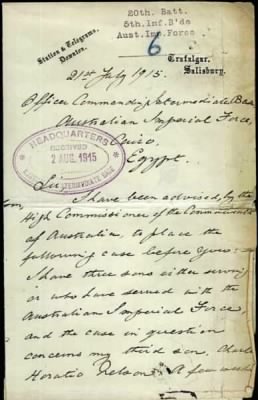 20th. Batt.
5th.Inf.B'de
Aust.Imp.Force
6
Station & Telegrams,
Downton.
Trafalgar,
Salisbury.
21st July 1915.
Officer Commanding Intermediate Base
Australian Imperial Force,
Cairo,
Egypt.
HEADQUARTERS
RECEIVED
2 AUG. 1915
INTERMEDIATE BASE
Sir
I have been advised, by the
High Commissioner of the Commonwealth
of Australia, to place the
following case before you:—
I have three sons either serving
or who have served with the
Australian Imperial Force,
and the case in question
concerns my third son, Charles
Horatio Nelson. A few weeks